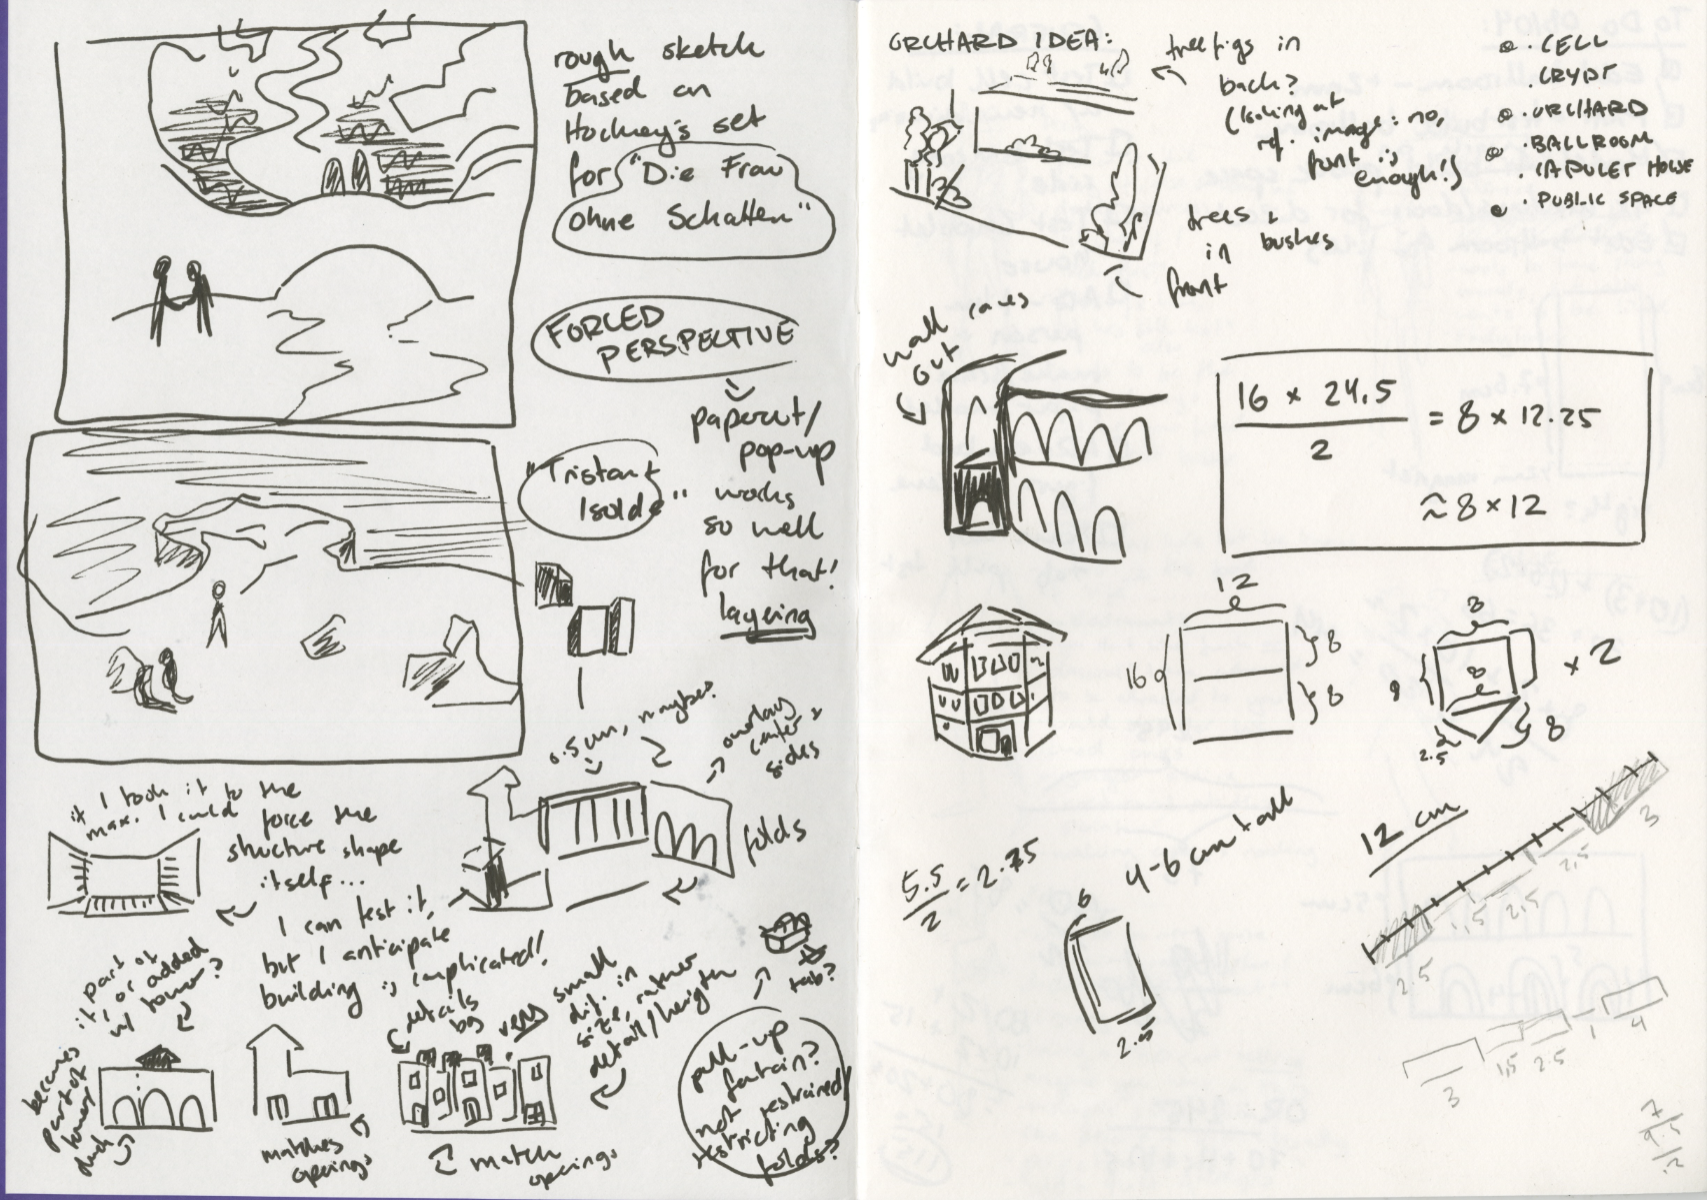 rough sketch
based on
Hockney's set
for "Die Frau
ohne Schatten"
FORCED
PERSPECTIVE
papercut/
pop-up
works
so well
for that!
layering
"Tristan +
Isolde"
0.5 cm, maybe?
overlay
center &
sides
folds
if I took it to the
max. I could
force the
structure shape
itself...
I can test it,
but I anticipate
building is complicated!
is part of
it, or added
w/ tower?
becomes
part of
tower
matches
openings
details
bg
very small
dif. in
size, rather
detail/height
match
openings
tab?
pull-up
fountain?
not restrained/
restricting
folds?
ORCHARD IDEA:
tree figs in
back?
(looking at
ref. image: no,
front is
enough!)
trees &
in bushes
front
• CELL
• CRYPT
• ORCHARD
• BALLROOM
• CAPULET HOUSE
• PUBLIC SPACE
wall comes
out
16 × 24.5
2
= 8 × 12.25
≈ 8 × 12
12
16
8
8
8
8
8
× 2
2.5
8
5.5
2
= 2.75
4-6 cm tall
6
2.5
12 cm
3
2.5
2.5
1.5
2.5
3
1.5
2.5
1
4